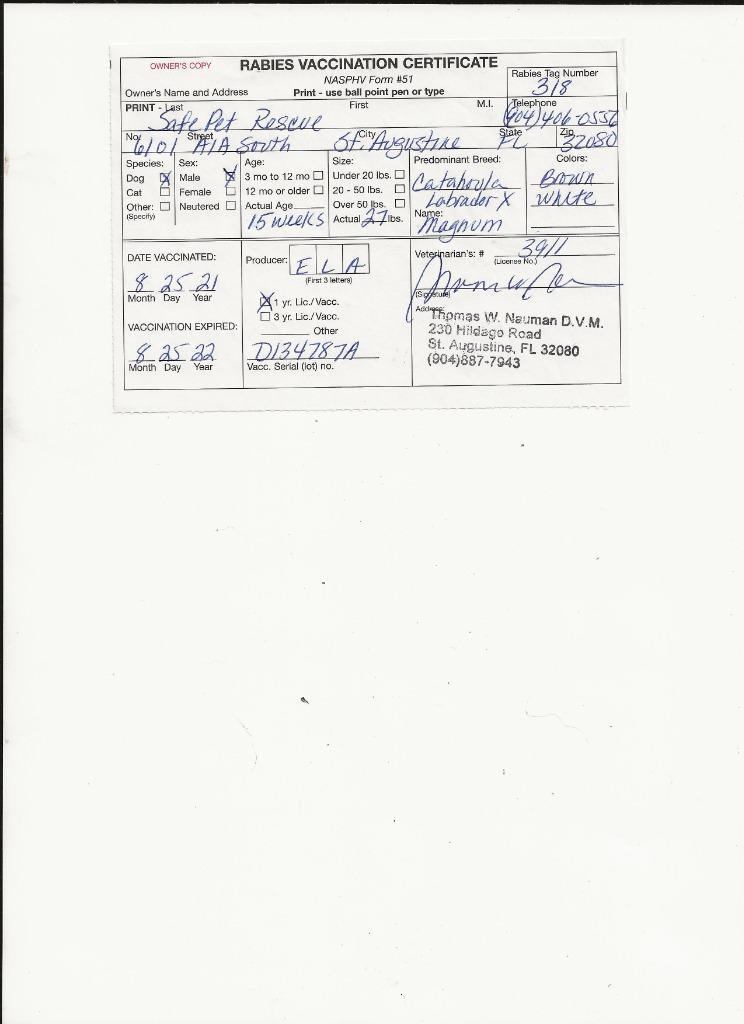 OWNER'S COPY
RABIES VACCINATION CERTIFICATE
NASPHV Form #51
Rabies Tag Number
318
Owner's Name and Address
Print - use ball point pen or type
PRINT - Last First M.I. Telephone
Safe Pet Rescue (904)406-0552
No. Street City State Zip
6101 A1A South St. Augustine FL 32080
Species: Sex: Age: Size: Predominant Breed: Colors:
Dog X Male X 3 mo to 12 mo ☐ Under 20 lbs. ☐ Catahoula Brown
Cat ☐ Female ☐ 12 mo or older ☐ 20 - 50 lbs. ☐ Labrador X White
Other: ☐ Neutered ☐ Actual Age Over 50 lbs. ☐ Name:
(Specify) 15 weeks Actual 27 lbs. Magnum
DATE VACCINATED:
8 25 21
Month Day Year
VACCINATION EXPIRED:
8 25 22
Month Day Year
Producer: E L A
(First 3 letters)
X 1 yr. Lic./Vacc.
☐ 3 yr. Lic./Vacc.
Other
D134787A
Vacc. Serial (lot) no.
Veterinarian's: # 3911
(License No.)
(Signature)
Address:
Thomas W. Nauman D.V.M.
230 Hildago Road
St. Augustine, FL 32080
(904)887-7943